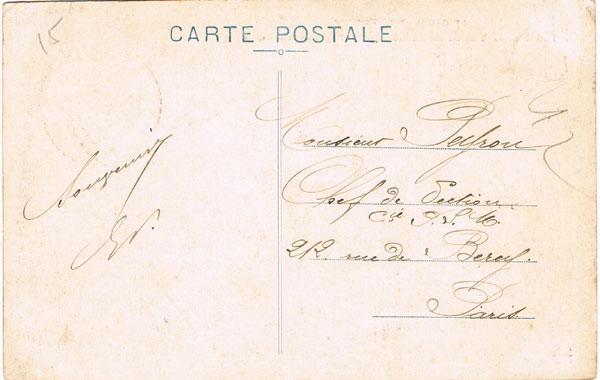 15
CARTE POSTALE
Souvenir
Monsieur Peyron
Chef de Section
Cie P.L.M.
212 rue de Bercy
Paris